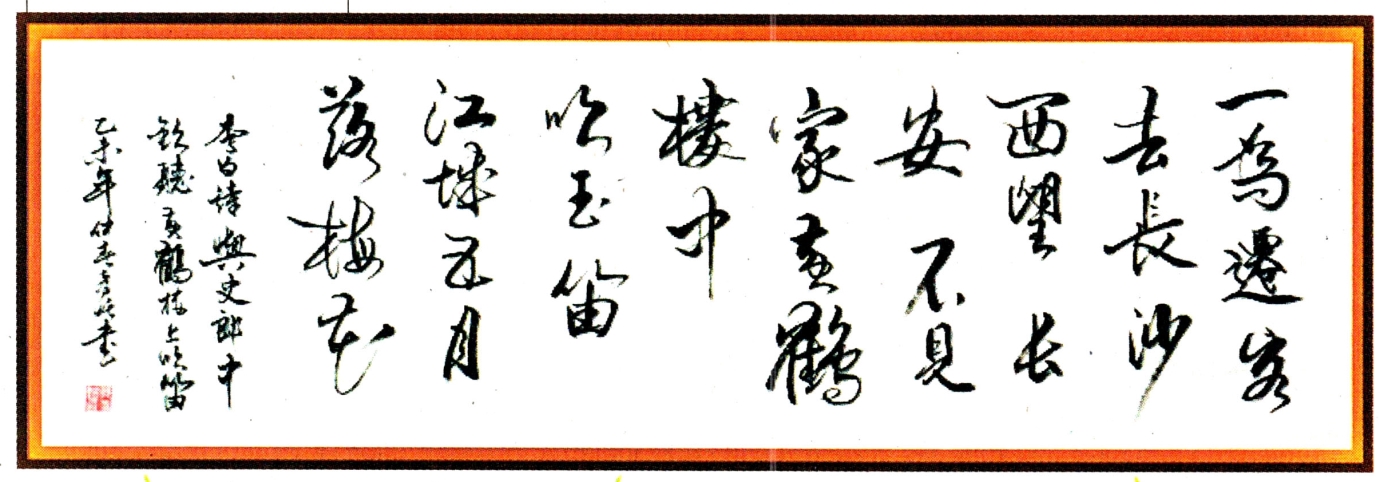 一為遷客
去長沙
西望长
安不見
家黄鶴
樓中
吹玉笛
江城五月
落梅花
李白詩與史郎中
欽聽黄鶴楼上吹笛
乙未年仲春書